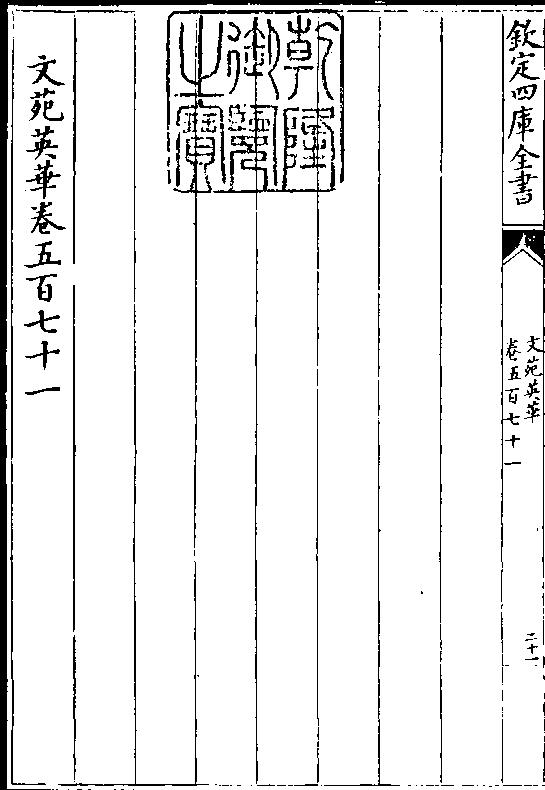 欽定四庫全書
文苑英華
卷五百七十一
二十一
乾隆御覽之寶
文苑英華卷五百七十一